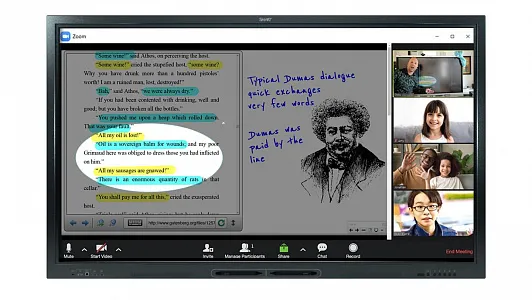 SMART
Zoom
"Some wine" said Athos, on perceiving the host.
"Some wine!" cried the stupefied host, "some wine?
Why you have drunk more than a hundred pistoles'
worth! I am a ruined man, lost, destroyed!"
"Bah," said Athos, "we were always dry."
"If you had been contented with drinking, well and
good; but you have broken all the bottles."
"You pushed me upon a heap which rolled down.
That was your fault."
"All my oil is lost!"
"Oil is a sovereign balm for wounds; and my poor
Grimaud here was obliged to dress those you had inflicted
on him."
"All my sausages are gnawed!"
"There is an enormous quantity of rats in that
cellar."
"You shall pay me for all this," cried the exasperated
host.
Typical Dumas dialogue
quick exchanges
very few words
Dumas was
paid by the
line
Mute
Start Video
Invite
Manage Participants
1
Share
Chat
Record
End Meeting